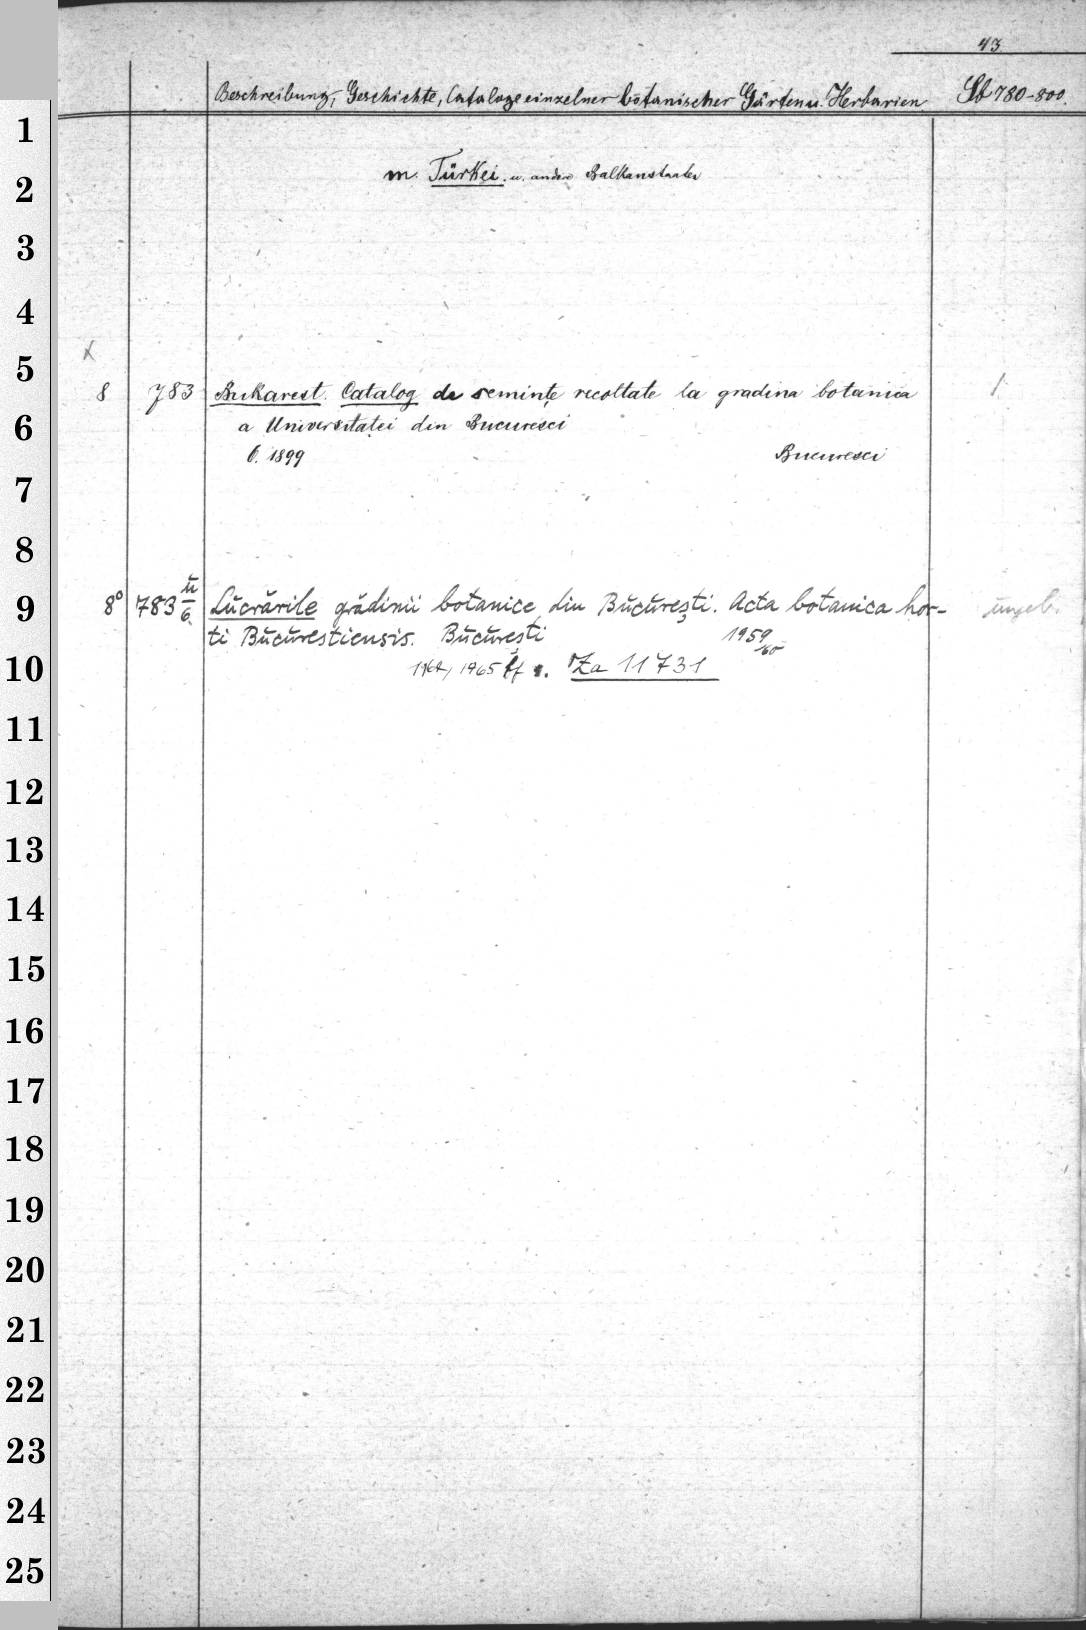 43
Beschreibung, Geschichte, Cataloge einzelner botanischer Gärten u. Herbarien. Lb 780-800.
1
m. Türkei. u. andere Balkanstaaten
2
3
4
5
X
8 783 Bukarest. Catalog de seminţe recoltate la gradina botanica 1
6 a Universitaţei din Bucuresci
6. 1899 Bucuresci
7
8
9 8° 783 u/6. Lucrările grădinii botanice din Bucureşti. Acta botanica hor- ungeb.
ti Bucurestiensis. Bucureşti 1959/60
10 1964, 1965 ff . Za 11731
11
12
13
14
15
16
17
18
19
20
21
22
23
24
25